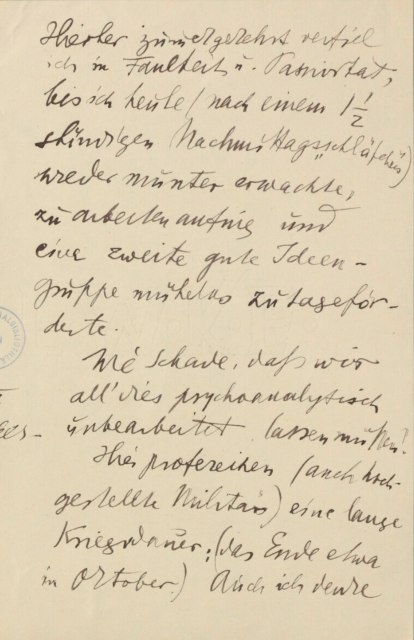 Hierher zurückgekehrt verfiel
ich in Faulheit u. Passivität,
bis ich heute (nach einem 1 1/2
stündigen Nachmittags„schläfchen")
wieder munter erwachte,
zu arbeiten anfing und
eine zweite gute Ideen-
gruppe mühelos zutageför-
derte.
Wie schade, daß wir
all' dies psychoanalytisch
unbearbeitet lassen müssen!
Hier profezeihen (auch hoch-
gestellte Militärs) eine lange
Kriegsdauer; (das Ende etwa
in Oktober.) Auch ich denke